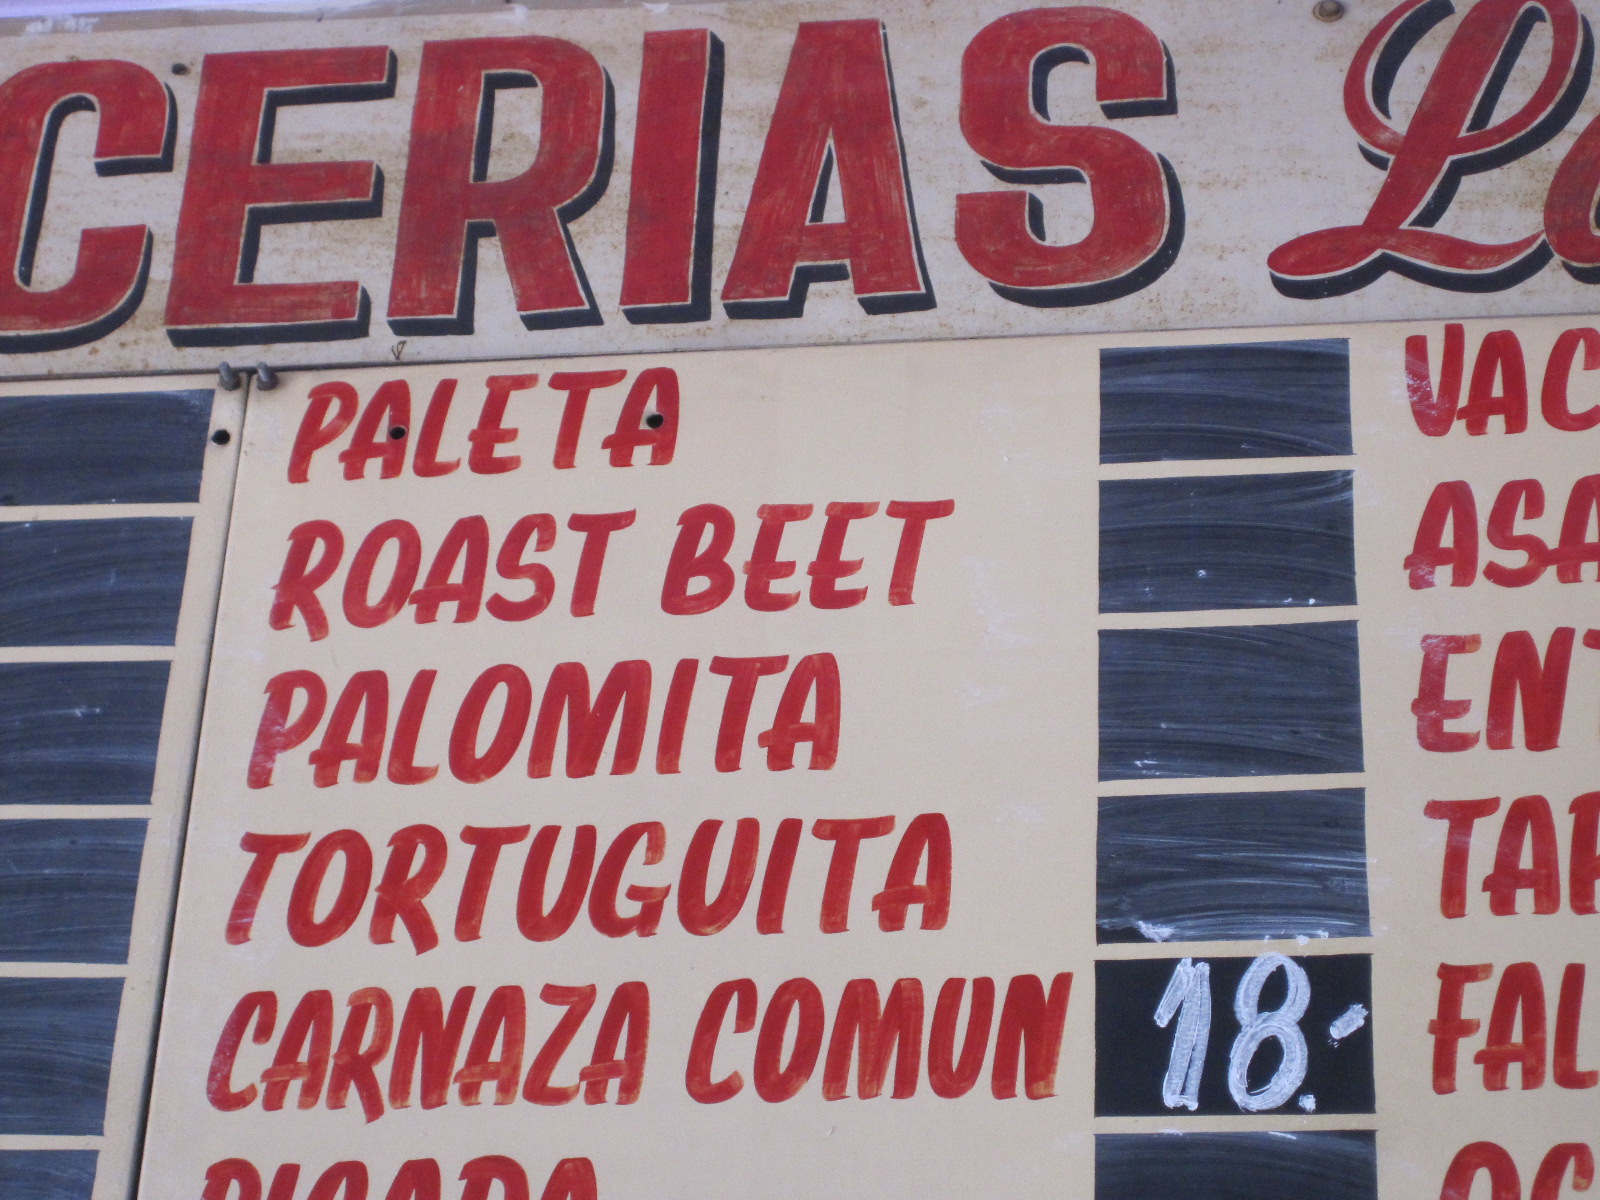 CERIAS La
PALETA
ROAST BEET
PALOMITA
TORTUGUITA
CARNAZA COMUN 18.-
PICADA
VAC
ASA
ENT
TAP
FAL